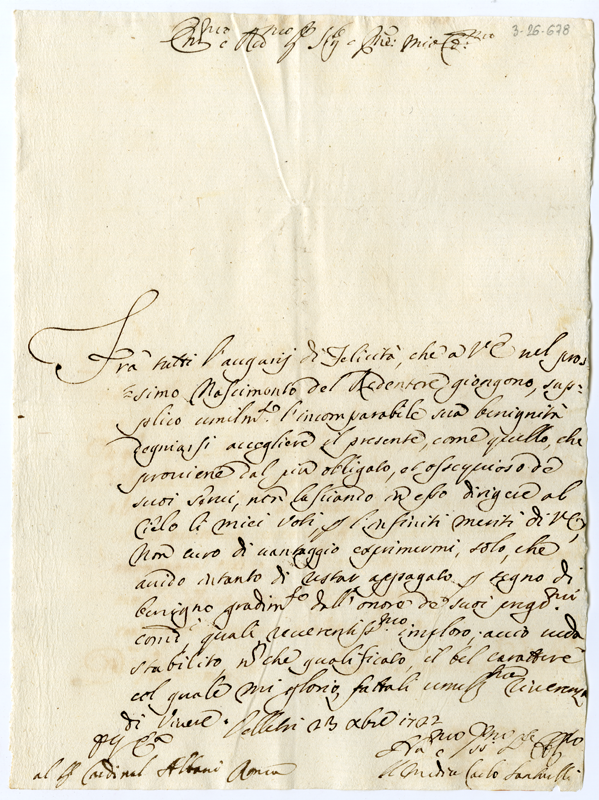 3-26-678
Frà tutti l'augurij di Felicità, che a V E nel pros
simo Nascimento del Redentore giongono, sup=
plico umilm.te l'incomparabile sua benignità
degniarsi accogliere il presente, come quello, che
proviene dal più obligato, et ossequioso de
suoi servi, non lasciando in esso dirigere al
Cielo li miei Voti, p l'infiniti meriti di V E,
Non curo di vantaggio esprimermi, solo, che
avido intanto di restar appagato p segno di
benigno gradim.to dell'onore de suoi preg.mi
comdi quali reverentiss.te imploro, acciò veda
stabilito, che qualificato, il bel carattere
col quale mi glorio, fattali umiliss.ma riverenza
di Vivere. Velletri 23 Xbre 1722
al Cardinal Albani Roma
Carlo